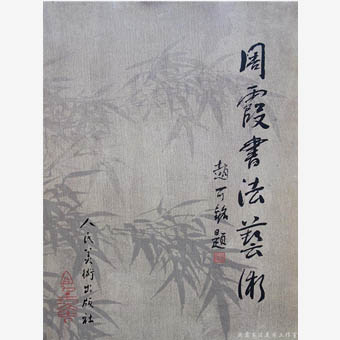 周霞書法藝術
趙可銘題
人民美術出版社